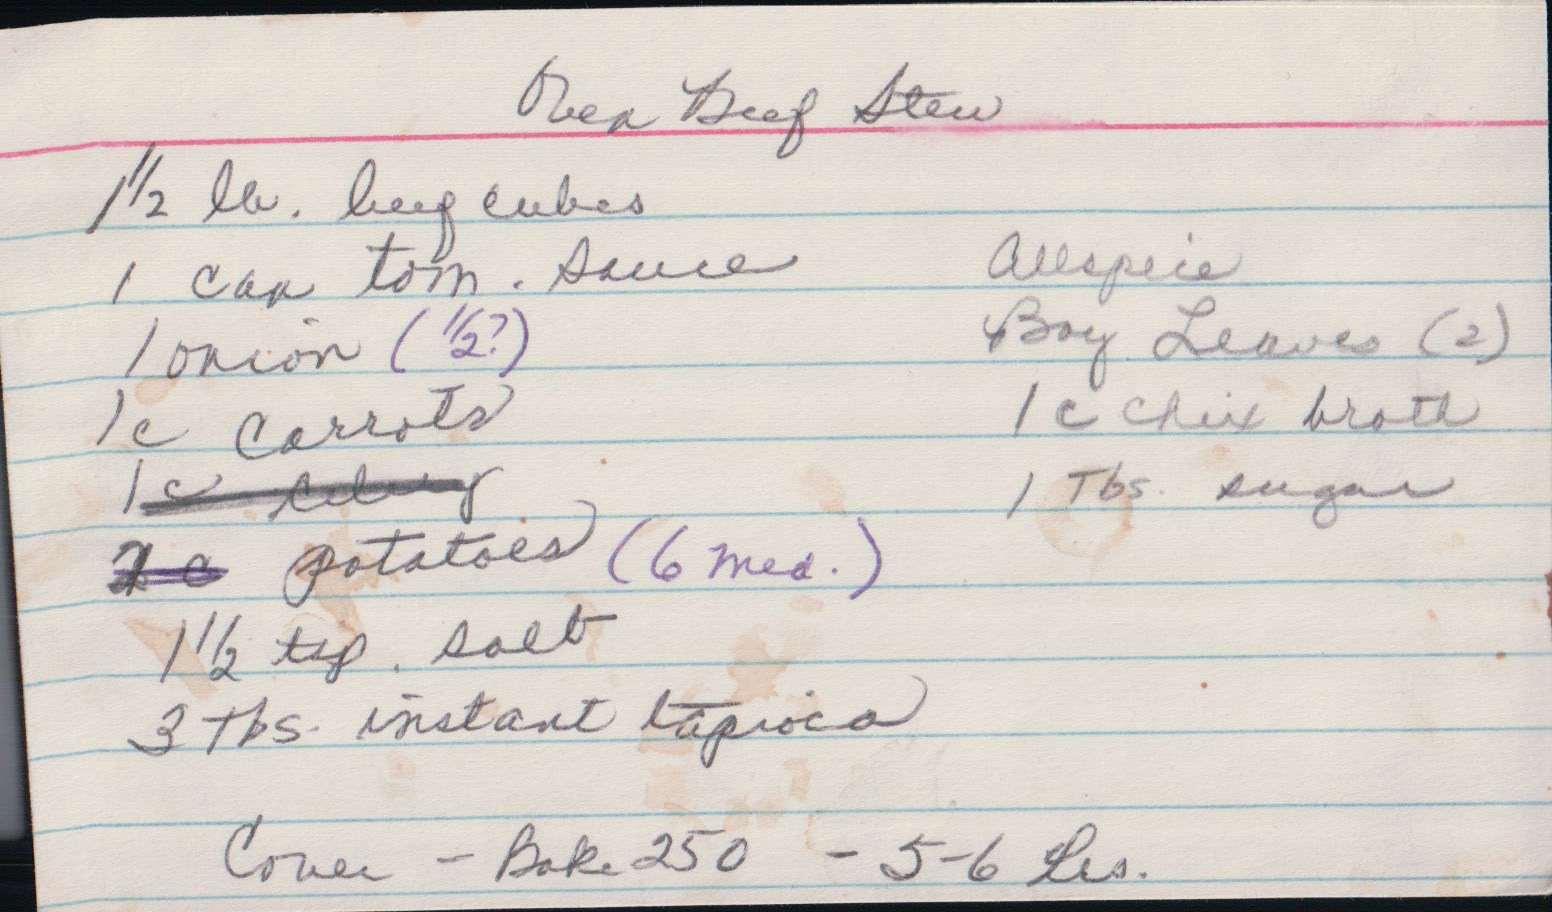 Oven Beef Stew
1 1/2 lb. beef cubes
1 can tom. sauce
1 onion (1/2?)
1 c carrots
1 c celery
c potatoes (6 med.)
1 1/2 tsp. salt
3 Tbs. instant tapioca
Allspice
Bay Leaves (2)
1 c chix broth
1 Tbs. sugar
Cover - Bake 250 - 5-6 hrs.